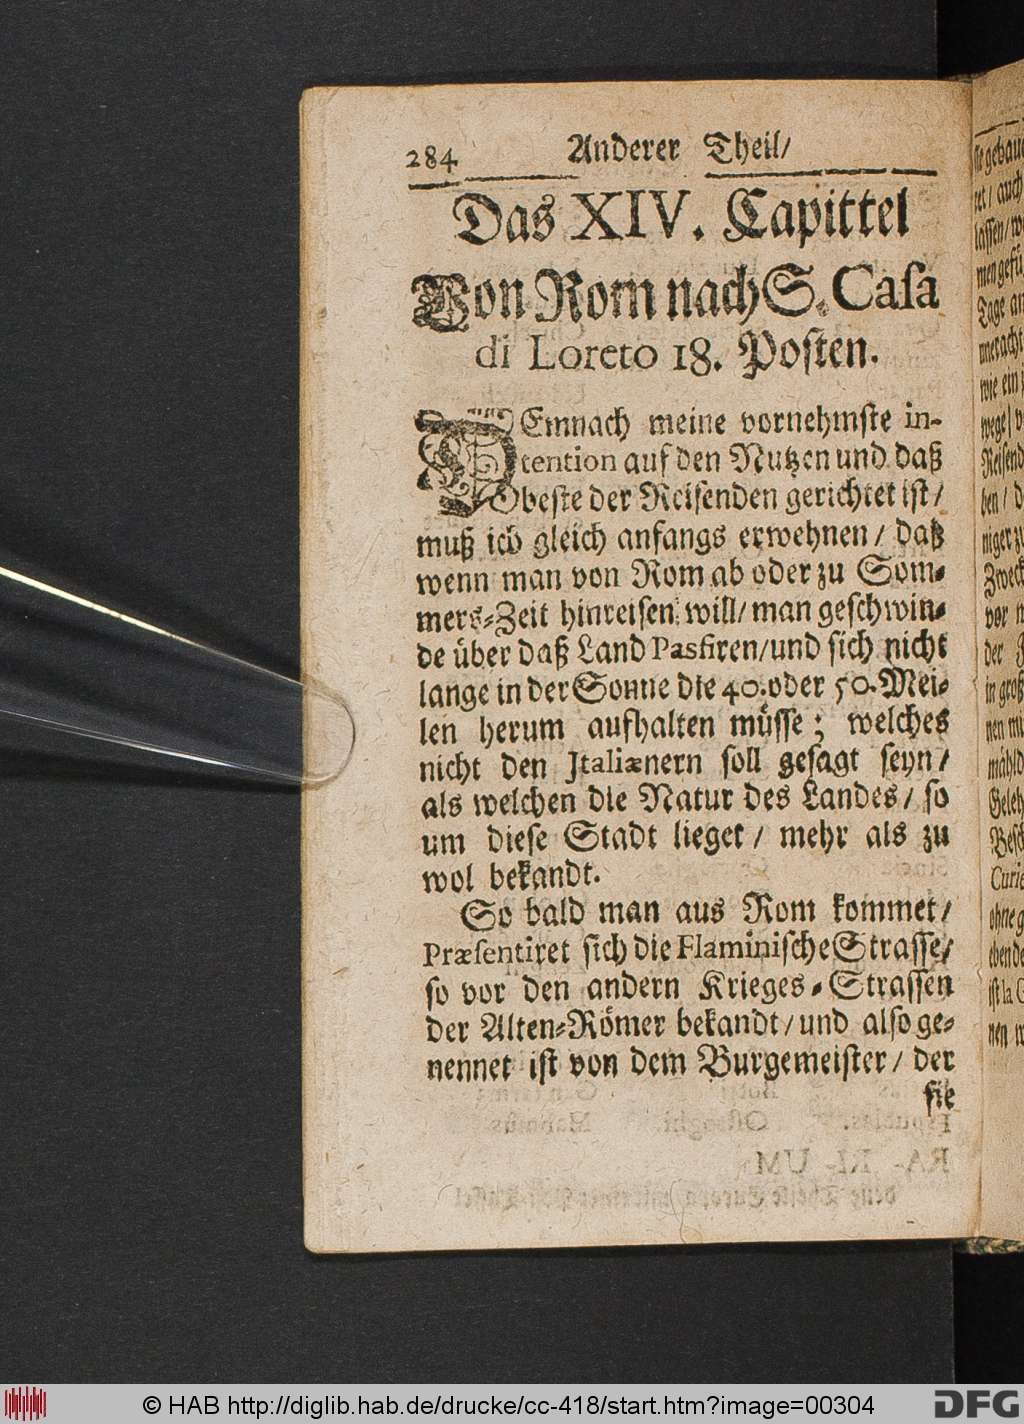 284 Anderer Theil/
Das XIV. Capittel
Von Rom nach S. Casa
di Loreto 18. Posten.
DEmnach meine vornehmste in-
tention auf den Nutzen und daß
beste der Reisenden gerichtet ist/
muß ich gleich anfangs erwehnen/ daß
wenn man von Rom ab oder zu Som-
mers-Zeit hinreisen will/ man geschwin-
de über daß Land Passiren/ und sich nicht
lange in der Sonne die 40. oder 50. Mei-
len herum aufhalten müsse; welches
nicht den Italiænern soll gesagt seyn/
als welchen die Natur des Landes/ so
um diese Stadt lieget/ mehr als zu
wol bekandt.
So bald man aus Rom kommet/
Præsentiret sich die Flaminische Strasse/
so vor den andern Krieges-Strassen
der Alten-Römer bekandt/ und also ge-
nennet ist von dem Burgemeister/ der
sie
© HAB http://diglib.hab.de/drucke/cc-418/start.htm?image=00304
DFG